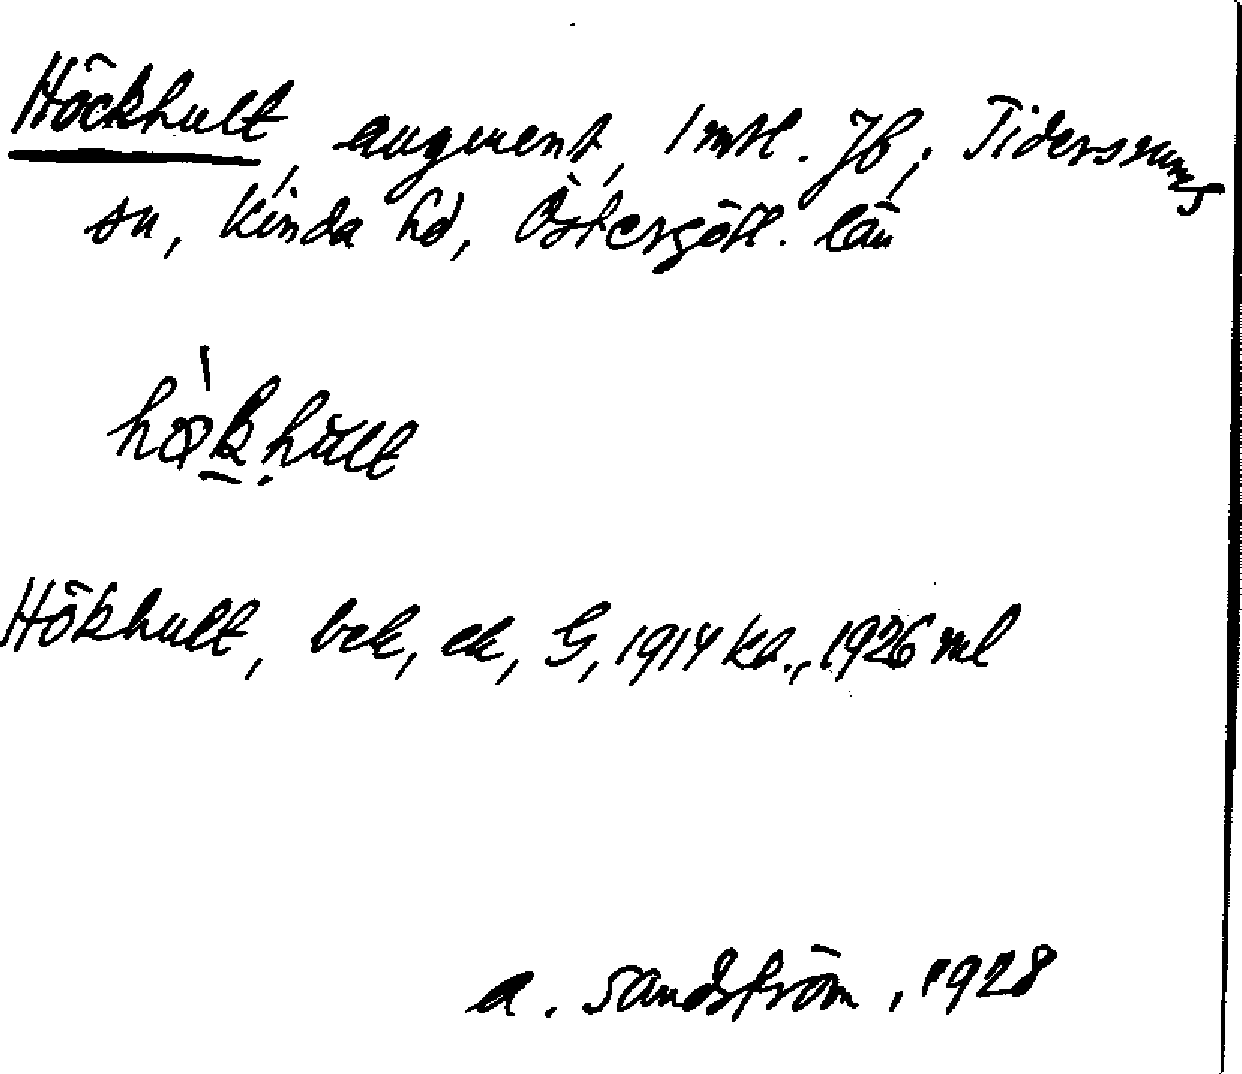 Höckhult, augment, 1 mtl. Jb; Tidersrums
sn, Kinda hd, Östergötl. län
Hökhult, bek, ek, G, 1914 ka., 1926 ml
A. Sandström, 1928